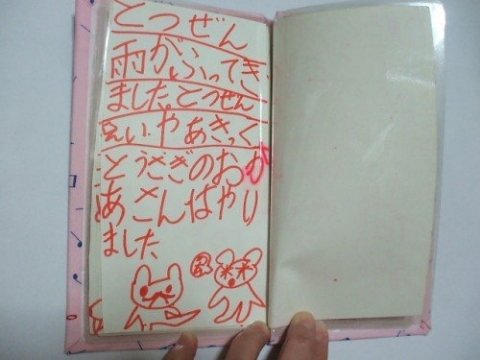 とつぜん
雨がふってき
ました。とつせん
えい.やあきっく
とうさぎのおか
あさんはやり
ました